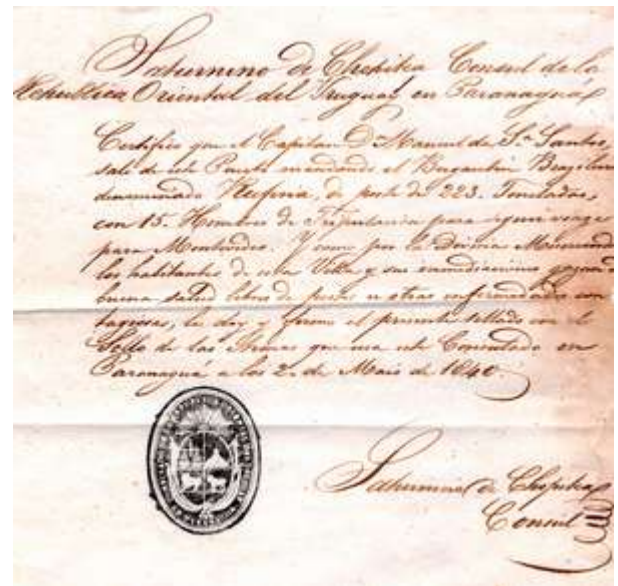 Saturnino de Chopitea Consul de la
Republica Oriental del Uruguay en Paranagua
Certifico que el Capitan D. Manuel da Sa. Santos,
sale de este Puerto mandando el Bergantin Brazilero
denominado Rufina, de porte de 223. Toneladas,
con 15. Hombres de Tripulacion para seguir viage
para Montevideo. Y como por la Divina Misericordia
los habitantes de esta Villa y sus inmediaciones gozan de
buena salud libres de peste u otras enfermedades con
tagiosas, le doy y firmo el presente sellado con el
Sello de las Armas que usa este Consulado en
Paranagua a los 2. de Maio de 1840.
Saturnino de Chopitea
Consul